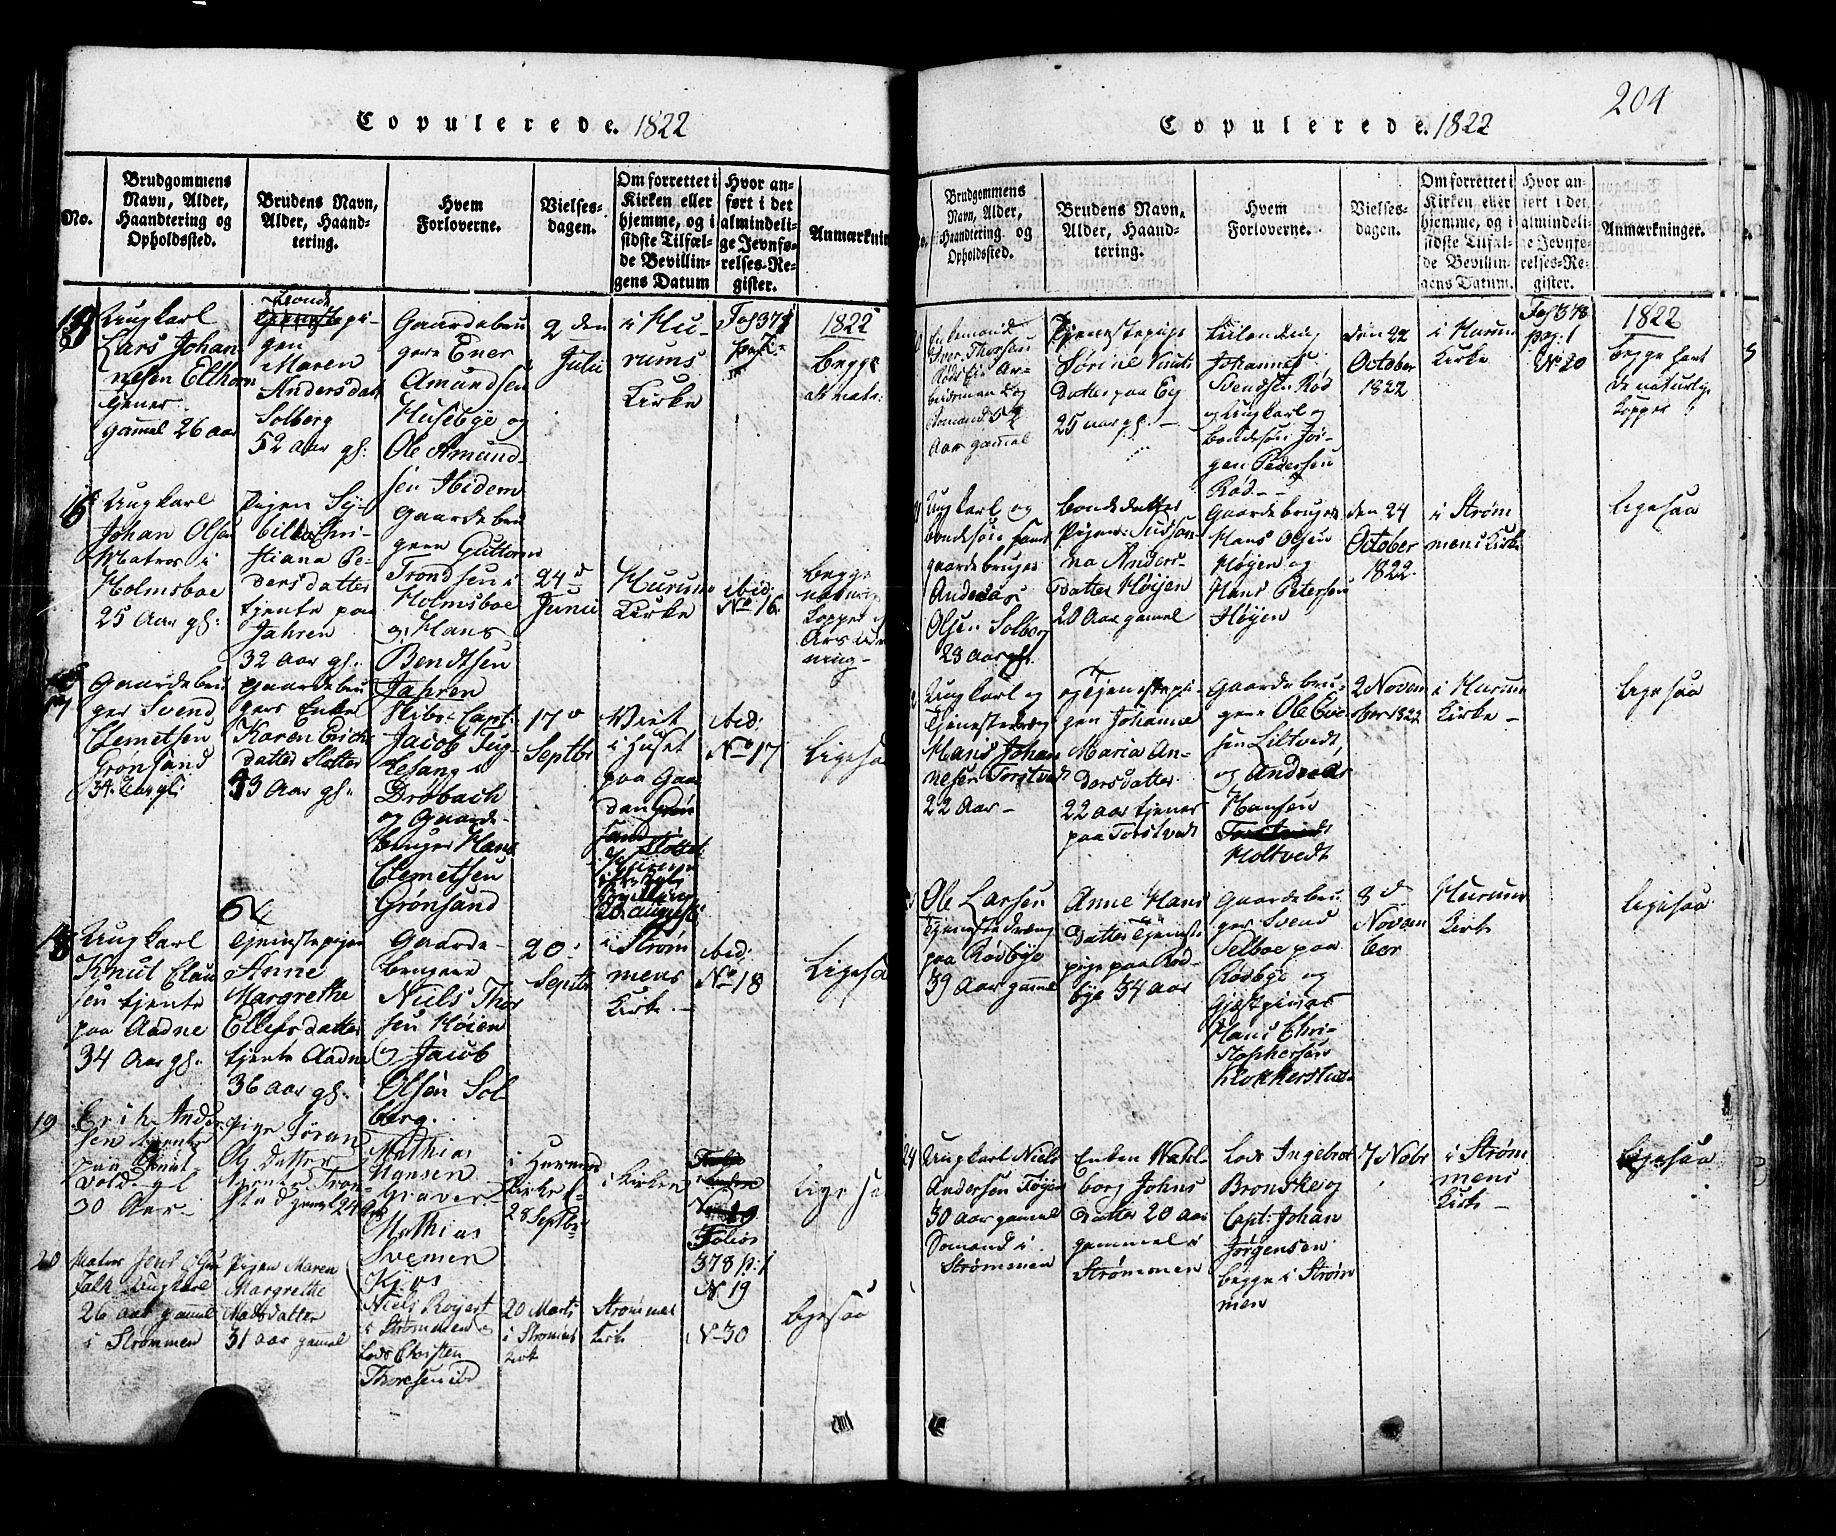 Copulerede. 1822
No.
Brudgommens Navn, Alder, Haandtering og Opholdssted.
Brudens Navn, Alder, Haandtering.
Hvem Forloverne.
Vielsesdagen.
Om forrettet i Kirken eller hjemme, og i sidste Tilfælde Bevillingens Datum
Hvor anført i det almindelige Jevnførelses-Register.
Anmærknin
Ungkarl
Lars Johan
nesen Ellhorn
tjener
gammel 26 aar
pi-
gen
Maren
Andersdat
Solberg
52 aar gl:
Gaardebru
gere Ener
Amundsen
Husebye og
Ole Amund-
sen Ibidem
2 den
Julii
i Hu-
rums
Kirke
1822
begge
16
Ungkarl
Johan Olsen
Matros i
Holmsboe
25 Aar gl:
Pigen Sy-
bille Chri-
stiana Pe-
dersdatter
tjente paa
Jahren
32 aar gl:
Gaardebru
gere Guttorm
Trondsen i
Holmsboe
og Hans
Bendtsen
Jahren
24 d
Junii
Hurums
Kirke
ibid:
No 16
begge
17
Gaardebru
ger Svend
Clemetsen
Grønsand
34 Aar gl:
Gaardebru
gers Enke
Karen Erichs
datter Slotter
33 Aar gl:
Ribs-Capt:
Jacob Fug-
lesang i
Drøbach
og Gaard-
bruger Hans
Clemetsen
Grønsand
17 d
Septbr
Viet
i Huset
paa Gaar
den
20 august
ibid:
No 17
Ligesaa
18
Ungkarl
Knut Claus
sen tjente
paa Aadne
34 Aar gl.
Tjenestepigen
Anne
Margrethe
Ellefsdatter
tjente Aadne
36 aar gl.
Gaarde-
brugere
Niels Thor
sen Høien
og Jacob
Olsen Sol-
berg.
20
Septbr
i Strøm
mens
Kirke.
ibid:
No 18
Ligesaa
19
Erich Ander
sen tjente
paa
30 Aar
Pige Jøran
Ols Datter
tjente Tron-
stad gaml 24 Aar
Mathias
Hansen
Graver
Mathias
Svensen
Kjøs
i Hurums
Kirke
28 Septbr
i Kirken
Folios
378 p: 1
N 19
Ligesaa
20
Matros Jens Olsen
Falk Ungkarl
26 aar gammel
i Strømmen
Pigen Maren
Margrethe
Madsdatter
31 aar gammel
Niels Røyert
i Strømmen
Lods Christen
Thoresen ibd
20 Marts
i Strømens
Kirk
Strømmens
Kirke
N 30
Ligesaa
204
Copulerede. 1822
Brudgommens Navn, Alder, Haandtering og Opholdssted.
Brudens Navn, Alder, Haandtering.
Hvem Forloverne.
Vielsesdagen.
Om forrettet i Kirken eller hjemme, og i sidste Tilfælde Bevillingens Datum.
Hvor anført i det almindelige Jevnførelses-Register.
Anmærkninger.
Enkemand
Iver Thorsen
Rødseie Ar-
beidsmand og
Sømand 52
Aar gammel
Tjenestepige
Sørine Knuts
datter paa Ey
25 aar gl.
Johannes
Svendsen Rød
og Ungkarl og
bondesøn Jør-
gen Pedersen
Rød
den 22
October
1822
i Hurum
Kirke
Fol 378
pag. 1
No 20
1822
begge havt
de naturlige
Kopper
Ungkarl og
bondesøn samt
gaardebruger
Andreas
Olsen Solberg
28 aar gl.
bondedatter
Pigen
na Anders-
datter Høyen
20 Aar gamel
Gaardebruger
Hans Olsen
Høyen og
Hans Petersen
Høyen
den 24
October
1822.
i Strøm
mens Kirke
Ligesaa
Ungkarl og
Tjenestedreng
Hans Johan
nesen Torstvedt
22 Aar
og Tjenestepi-
gen Johanne
Maria An-
dersdatter
22 aar tjener
paa Torstvedt
Gaardebru-
gere Ole Eve-
sen Liltvedt,
og Andreas
Hansen
Holtvedt
2 Novem
ber 1822
i Hurum
Kirke
Ligesaa
Ole Larsen
Tjenestedreng
paa Rødbye
39 Aar gammel
Anne Hans
Datter Tjeneste
pige paa Rød-
bye 34 aar
Gaardebru
ger Svend
Selboe paa
Rødbye og
Gjestgiver
Hans Chri-
stophersen
Klokkerstue
8 d
Novem
ber
Hurums
Kirke
Ligesaa
24
Ungkarl Niels
Andersen Tøyen
30 aar gammel
Sømand i
Strømmen
Enken Wahl-
borg Johns
datter 20 aar
gammel i
Strømmen
Lods Ingebret
Bronske og
Capt: Johan
Jørgensen
begge i Strøm
men
7 Nobr
i Strøm
mens
Kirke
Ligesaa